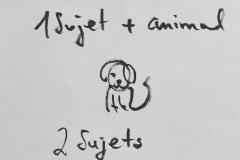 1 Sujet + animal
2 Sujets